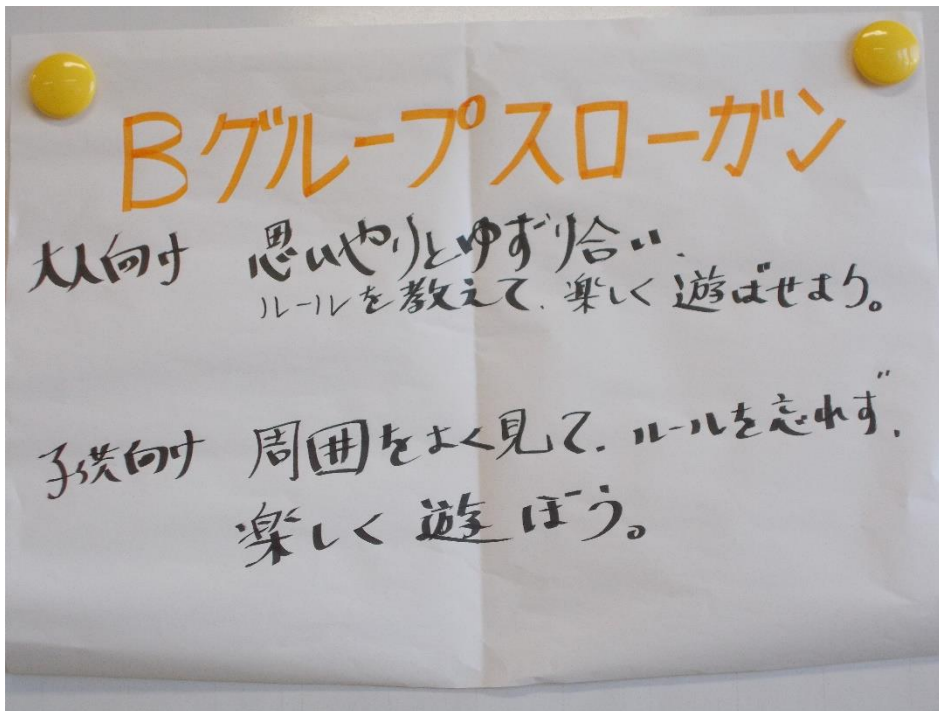 Bグループスローガン
大人向け 思いやりとゆずり合い、
ルールを教えて、楽しく遊ばせよう。
子供向け 周囲をよく見て、ルールを忘れず、
楽しく遊ぼう。